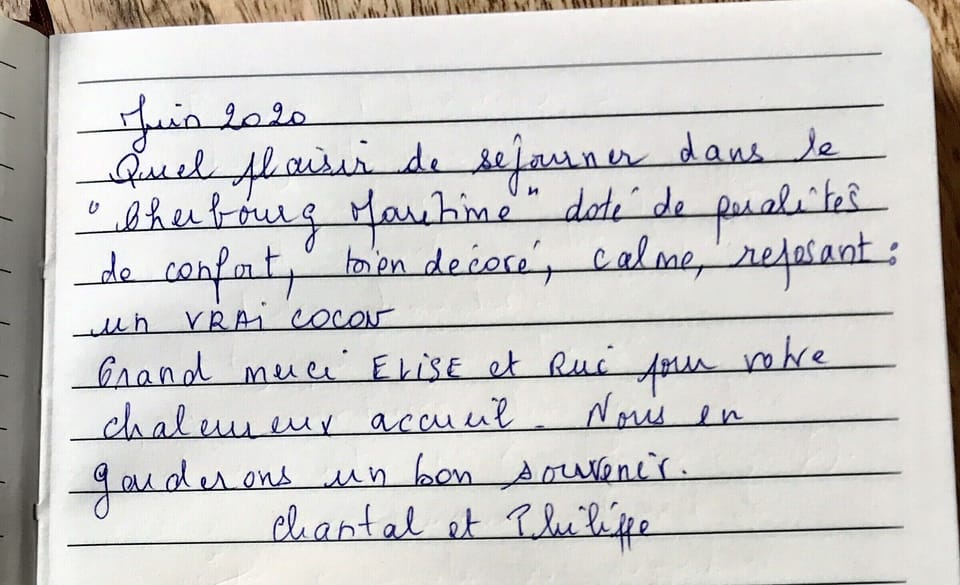 Juin 2020
Quel plaisir de séjourner dans le
"Cherbourg Maritime" doté de qualités
de confort, bien décoré, calme, reposant :
un VRAi COCON
Grand merci ELISE et pour votre
chaleureux accueil. Nous en
garderons un bon souvenir.
Chantal et Philippe